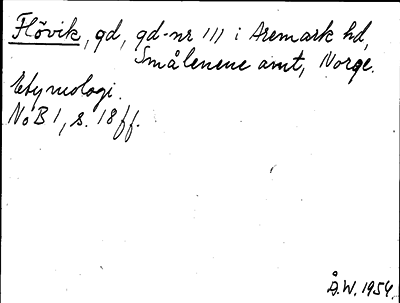 Flövik, gd, gd-nr 111 i Aremark hd,
Smålenene amt, Norge.
Etymologi.
NoB 1, s. 18 ff.
Å.W. 1954.